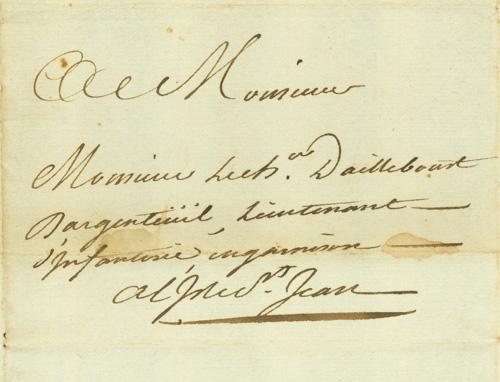 A Monsieur
Monsieur Lech.er Dailleboust
Dargenteüil, Lieutenant
d'Infanterie, engarnison
A L'Isle St. Jean